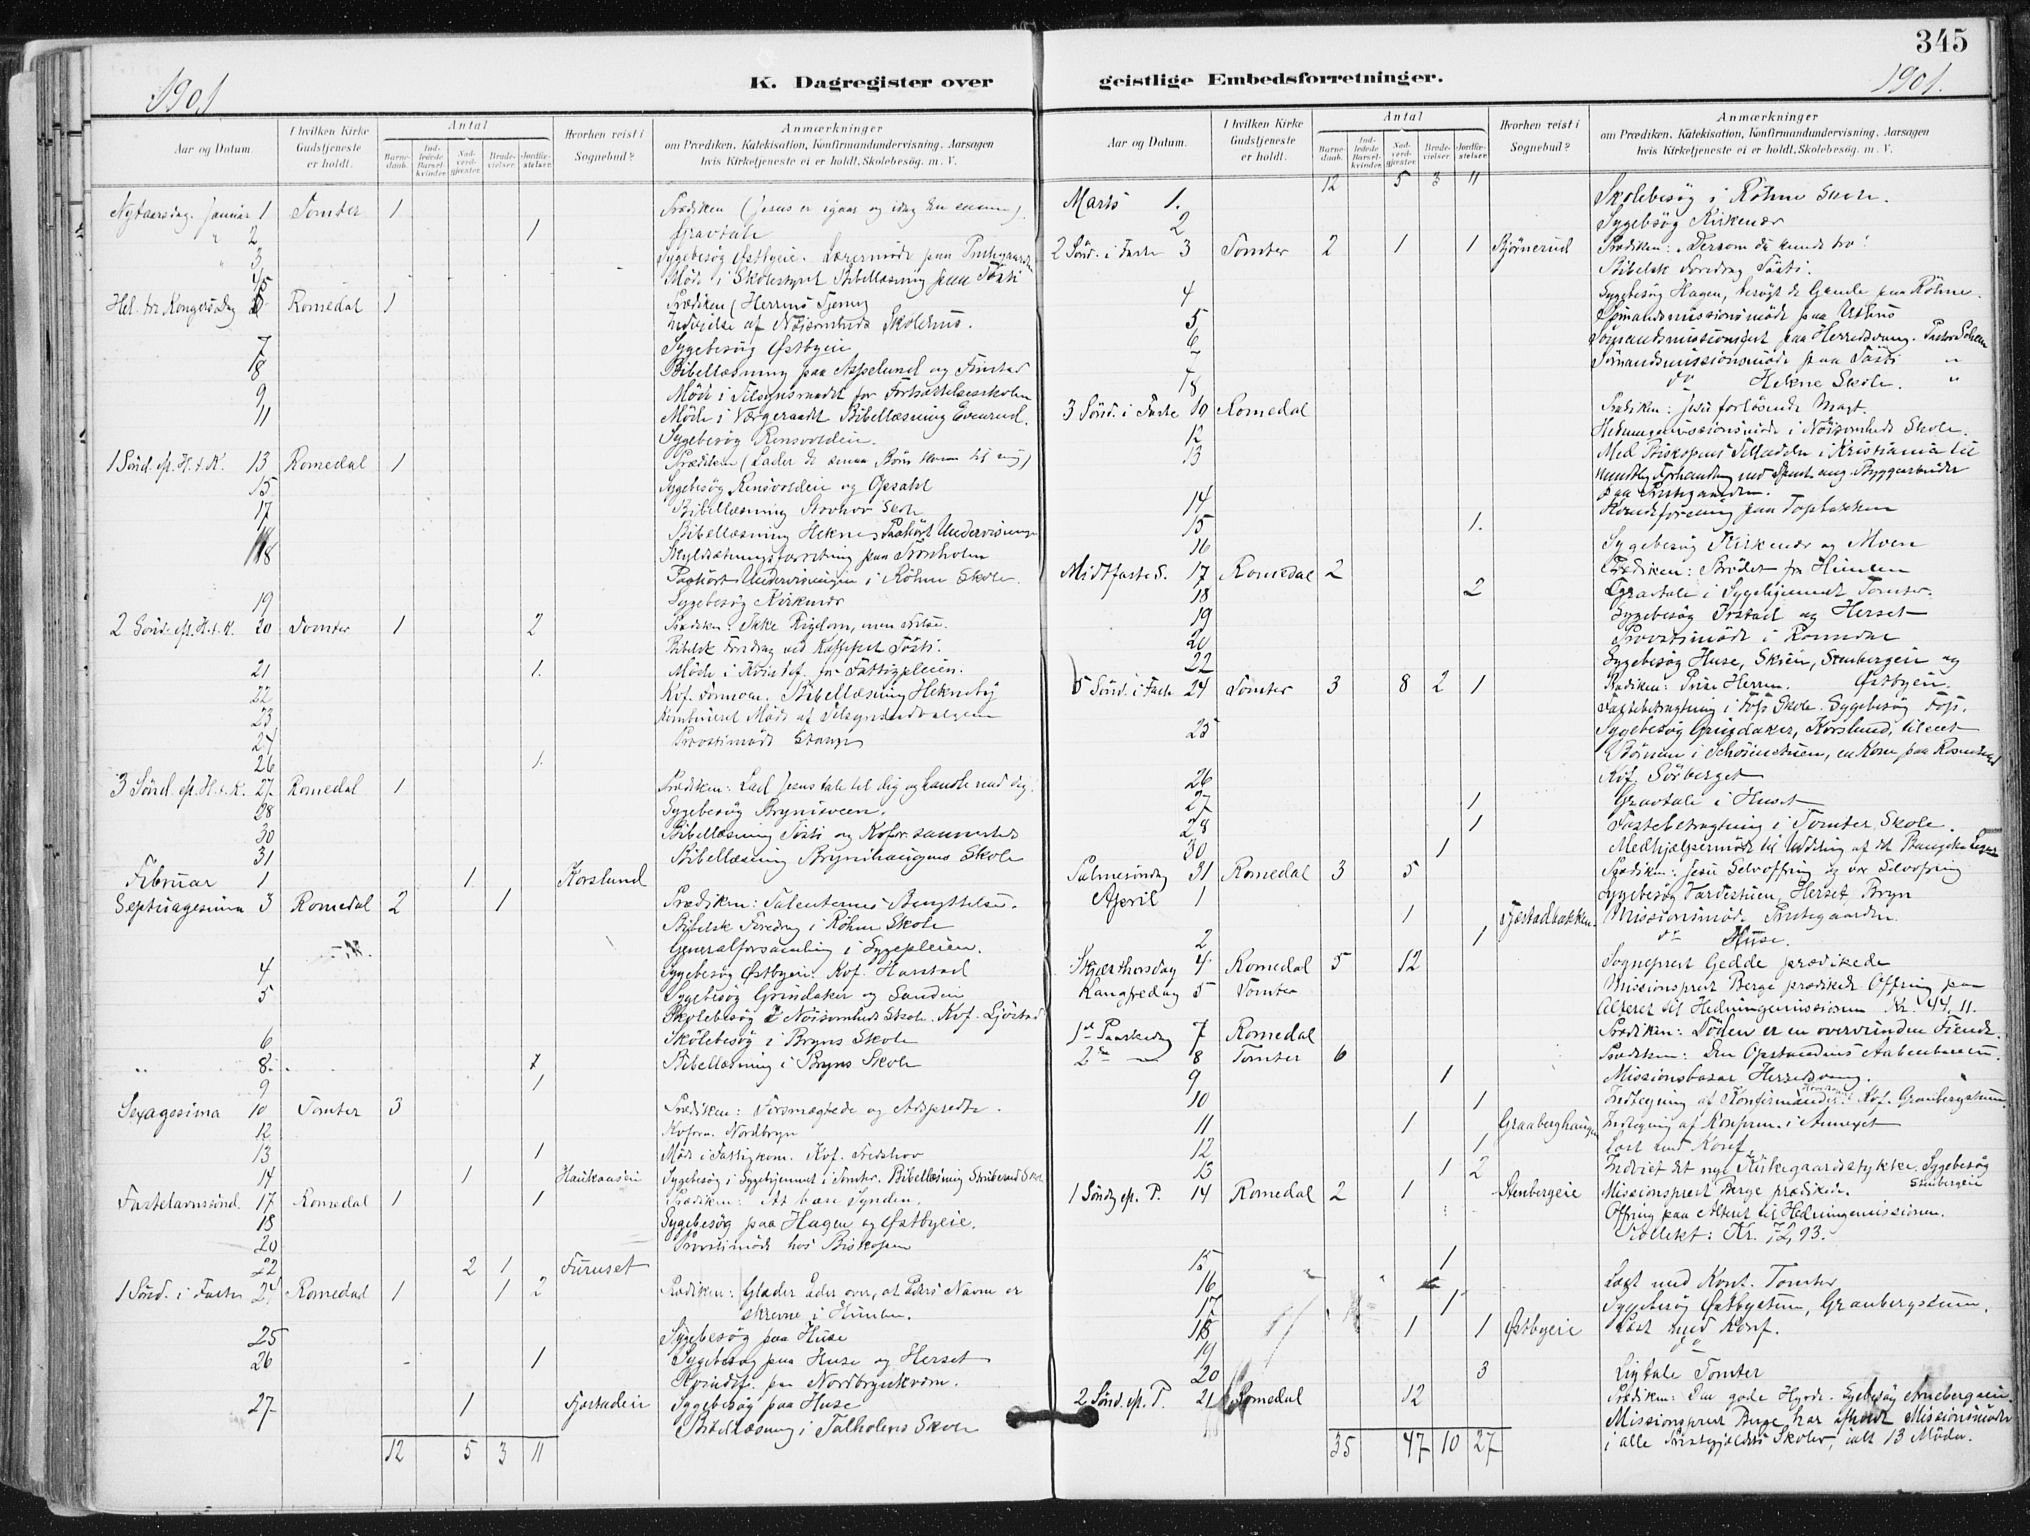 345
K. Dagregister over geistlige Embedsforretninger.
1901
1901.
Aar og Datum
I hvilken Kirke Gudstjeneste er holdt.
Antal
Barnedaab.
Indledede Barselkvinder.
Nadverdgjæster.
Brudevielser.
Jordfæstelser.
Hvorhen reist i Sognebud?
Anmærkninger
om Prædiken, Katekisation, Konfirmandundervisning, Aarsagen
hvis Kirketjeneste ei er holdt, Skolebesøg. m. V.
Nytaarsdag. Januar 1 Tomter 1 Prædiken (Jesus er igaar og idag den samme).
" 2 1 Gravtale
" 3 Sygebesøg Østbyeie. Lærermøde paa Prestegaarden
4/5 Møde i Skolestyret Bibellæsning paa Tosti
Hel. tre Kongers Dag 6 Romedal 1 Prædiken (Herrens Tjener)
Indvielse af Nøisomheds Skolehus.
7 Sygebesøg Østbyeie
8 Bibellæsning paa Asselund og Finstad
9 Møde i Tilsynsraadet for Fortsættelsesskolen
11 Møde i Værgeraadet Bibellæsning Evenrud.
Sygebesøg Rensvoldeie.
1 Sönd. ef. H. t. K. 13 Romedal 1 Prædiken (Lader de smaa Børn komme til mig)
15 Sygebesøg Rensvoldeie og Opsahl
17 Bibellæsning Stovhov Skole
18 Bibellæsning Heknes Paahørt Undervisningen
Skyldsætningsforretning paa
Paahørt Undervisningen i Röhne Skole.
19 Sygebesøg Kirkenær
2 Sönd. ef. H. t. K. 20 Tomter 1 2 Prædiken: Ikke Rigdom, men Frelse.
Bibelsk Foredrag ved Kaffefest Tosti.
21 1. Møde i for Fattigpleien.
22 Kvf. Bibellæsning Hekneby
23 Kombineret Møde af Tilsynsudvalgene
24 Provstimøde Stange
26 1.
3 Sönd. ef. H. t. K. 27 Romedal 1 Prædiken: Lad Jesus tale til dig og handle med dig.
28 Sygebesøg Bryniveen.
30 Bibellæsning Tosti og Kvfor. sammesteds
31 Bibellæsning Brynihaugens Skole
Februar 1 1 Korslund
Septuagesima 3 Romedal 2 1 Prædiken: Talenternes Benyttelse.
Bibelsk Foredrag i Röhne Skole
Generalforsamling i Sygepleien.
4 Sygebesøg Østbyeie. Kvf. Harstad
5 Sygebesøg Grindaker og Sandeie
Skolebesøg i Nøisomheds Skole. Kvf. Ljørstad
6 Skolebesøg i Bryns Skole
" 8 1 Bibellæsning i Bryns Skole
9 1
Sexagesima 10 Tomter 3 Prædiken: Forsmægtede og Adspredte.
12 Kvform. Nordbryn
13 1 Møde i Fattigkom. Kvf. Fredshov
14 1 Haukaaseie Sygebesøg i Sygehjemmet i Tomter. Bibellæsning Skole
Fastelavnssönd. 17 Romedal 1 1 Prædiken: At bære Synden.
18 Sygebesøg paa Hagen og Østbyeie.
20 Provstimøde hos Biskopen
22 2 1 Furuset
1 Sönd. i Faste 24 Romedal 1 1 2 Prædiken: Glæder Eder over, at Eders Navne er
skrevne i Himlen.
25 Sygebesøg paa Huse
26 1 Sygebesøg paa Huse og Herset
Kvindef. paa Nordbryn
27 1 Fjæstadeie Sygebesøg paa Huse
Bibellæsning i Skole
12 5 3 11
Aar og Datum.
I hvilken Kirke Gudstjeneste er holdt.
Antal
Barnedaab.
Indledede Barselkvinder.
Nadverdgjæster.
Brudevielser.
Jordfæstelser.
Hvorhen reist i Sognebud?
Anmærkninger
om Prædiken, Katekisation, Konfirmandundervisning, Aarsagen
hvis Kirketjeneste ei er holdt, Skolebesøg. m. V.
12 5 3 11
Marts 1. Skolebesøg i Röhne Skole.
2 Sygebesøg Kirkenær
2 Sönd. i Faste 3 Tomter 2 1 1 Bjørnerud Prædiken: "Dersom du kunde tro".
Bibelsk Foredrag Tosti.
4 Sygebesøg Hagen, besøgt de Gamle paa Röhne.
5 Sømandsmissionsmøde paa
6 Sømandsmissionsfest paa Herredsvang. Pastor
7 Sømandsmissionsmøde paa Tosti "
8 do Hekne Skole. "
3 Sönd. i Faste 10 Romedal Prædiken: Jesu forløsende Magt.
12 Hedningemissionsmøde i Nøisomheds Skole.
13 Med Biskopens Tilladelse i Kristiania til
mundtlig Forhandling med Depart. ang. Byggearbeider
paa Prestegaarden.
14 Kvindeforening paa Toptbakken
15 1.
16 Sygebesøg Kirkenær og Moen
Midtfaste S. 17 Romedal 2 Prædiken: Brødet fra Himlen
18 2 Gravtale i Sygehjemmet Tomter.
19 Sygebesøg og Herset
20 Provstimøde i Romedal
22 Sygebesøg Huse, Skien, Stenbergeie og
5 Sönd. i Faste 24 Tomter 3 8 2 1 Prædiken: Prise Herren. Østbyeie.
Fastebetragtning i Fojs Skole. Sygebesøg Fojs.
25 Sygebesøg Grindaker, Korslund, tilseet
Børnene i, en Kone paa
26 Kvf. Sörberget
27 1 Gravtale i Huset
28 1 Fastebetragtning i Tomter Skole.
30 1 Medhjælpermøde til Uddeling af det Legat
Palmesöndag 31 Romedal 3 5 Prædiken: Jesu Selvofring og vor Selvofring
April 1 Sygebesøg, Herset, Bryn
1 Fjæstadbakken. Missionsmøde Prestegaarden.
2 1 do Huse.
Skjærthorsdag 4 Romedal 5 12 Sogneprest Gedde prædikede
Langfredag 5 Tomter Missionsprest Berge prædikede Offring paa
Alteret til Hedningemissionen Kr. 44.11.
1ste Paaskedag 7 Romedal Prædiken: Döden er en overvunden Fiende.
2den — 8 Tomter 6 Prædiken: Den Opstandnes Aabenbarelse.
9 1 Missionsbazar Herredsvang.
10 1 Indtegning af Konfirmander. Kvf. Granbergstuen.
11 1 Graaberghaugen Indtegning af Konfirm. i Annexet
12 1 Læst med Konf.
13 1 2 Indviet det nye Kirkegaardsstykke. Sygebesøg Stenbergeie
1 Söndag ef. P. 14 Romedal 2 1 Stenbergeie Missionsprest Berge prædikede.
Offring paa Alteret til Hedningemissionen.
Kollekt: Kr. 72,93.
15 1
16 Læst med Konf. Tomter
17 1 Sygebesøg Østbystuen, Granbergstuen.
18 1 1 Østbyeie Læst med Konf.
19 "
20 3 Ligtale Tomter
2 Sönd. ef. P. 21 Romedal 12 Prædiken: Den gode Hyrde. Sygebesøg Arnebergeie.
Missionsprest Berge har afholdt Missionsmøder
i alle Prestegjeldets Skoler, ialt 13 Møder.
35 47 10 27